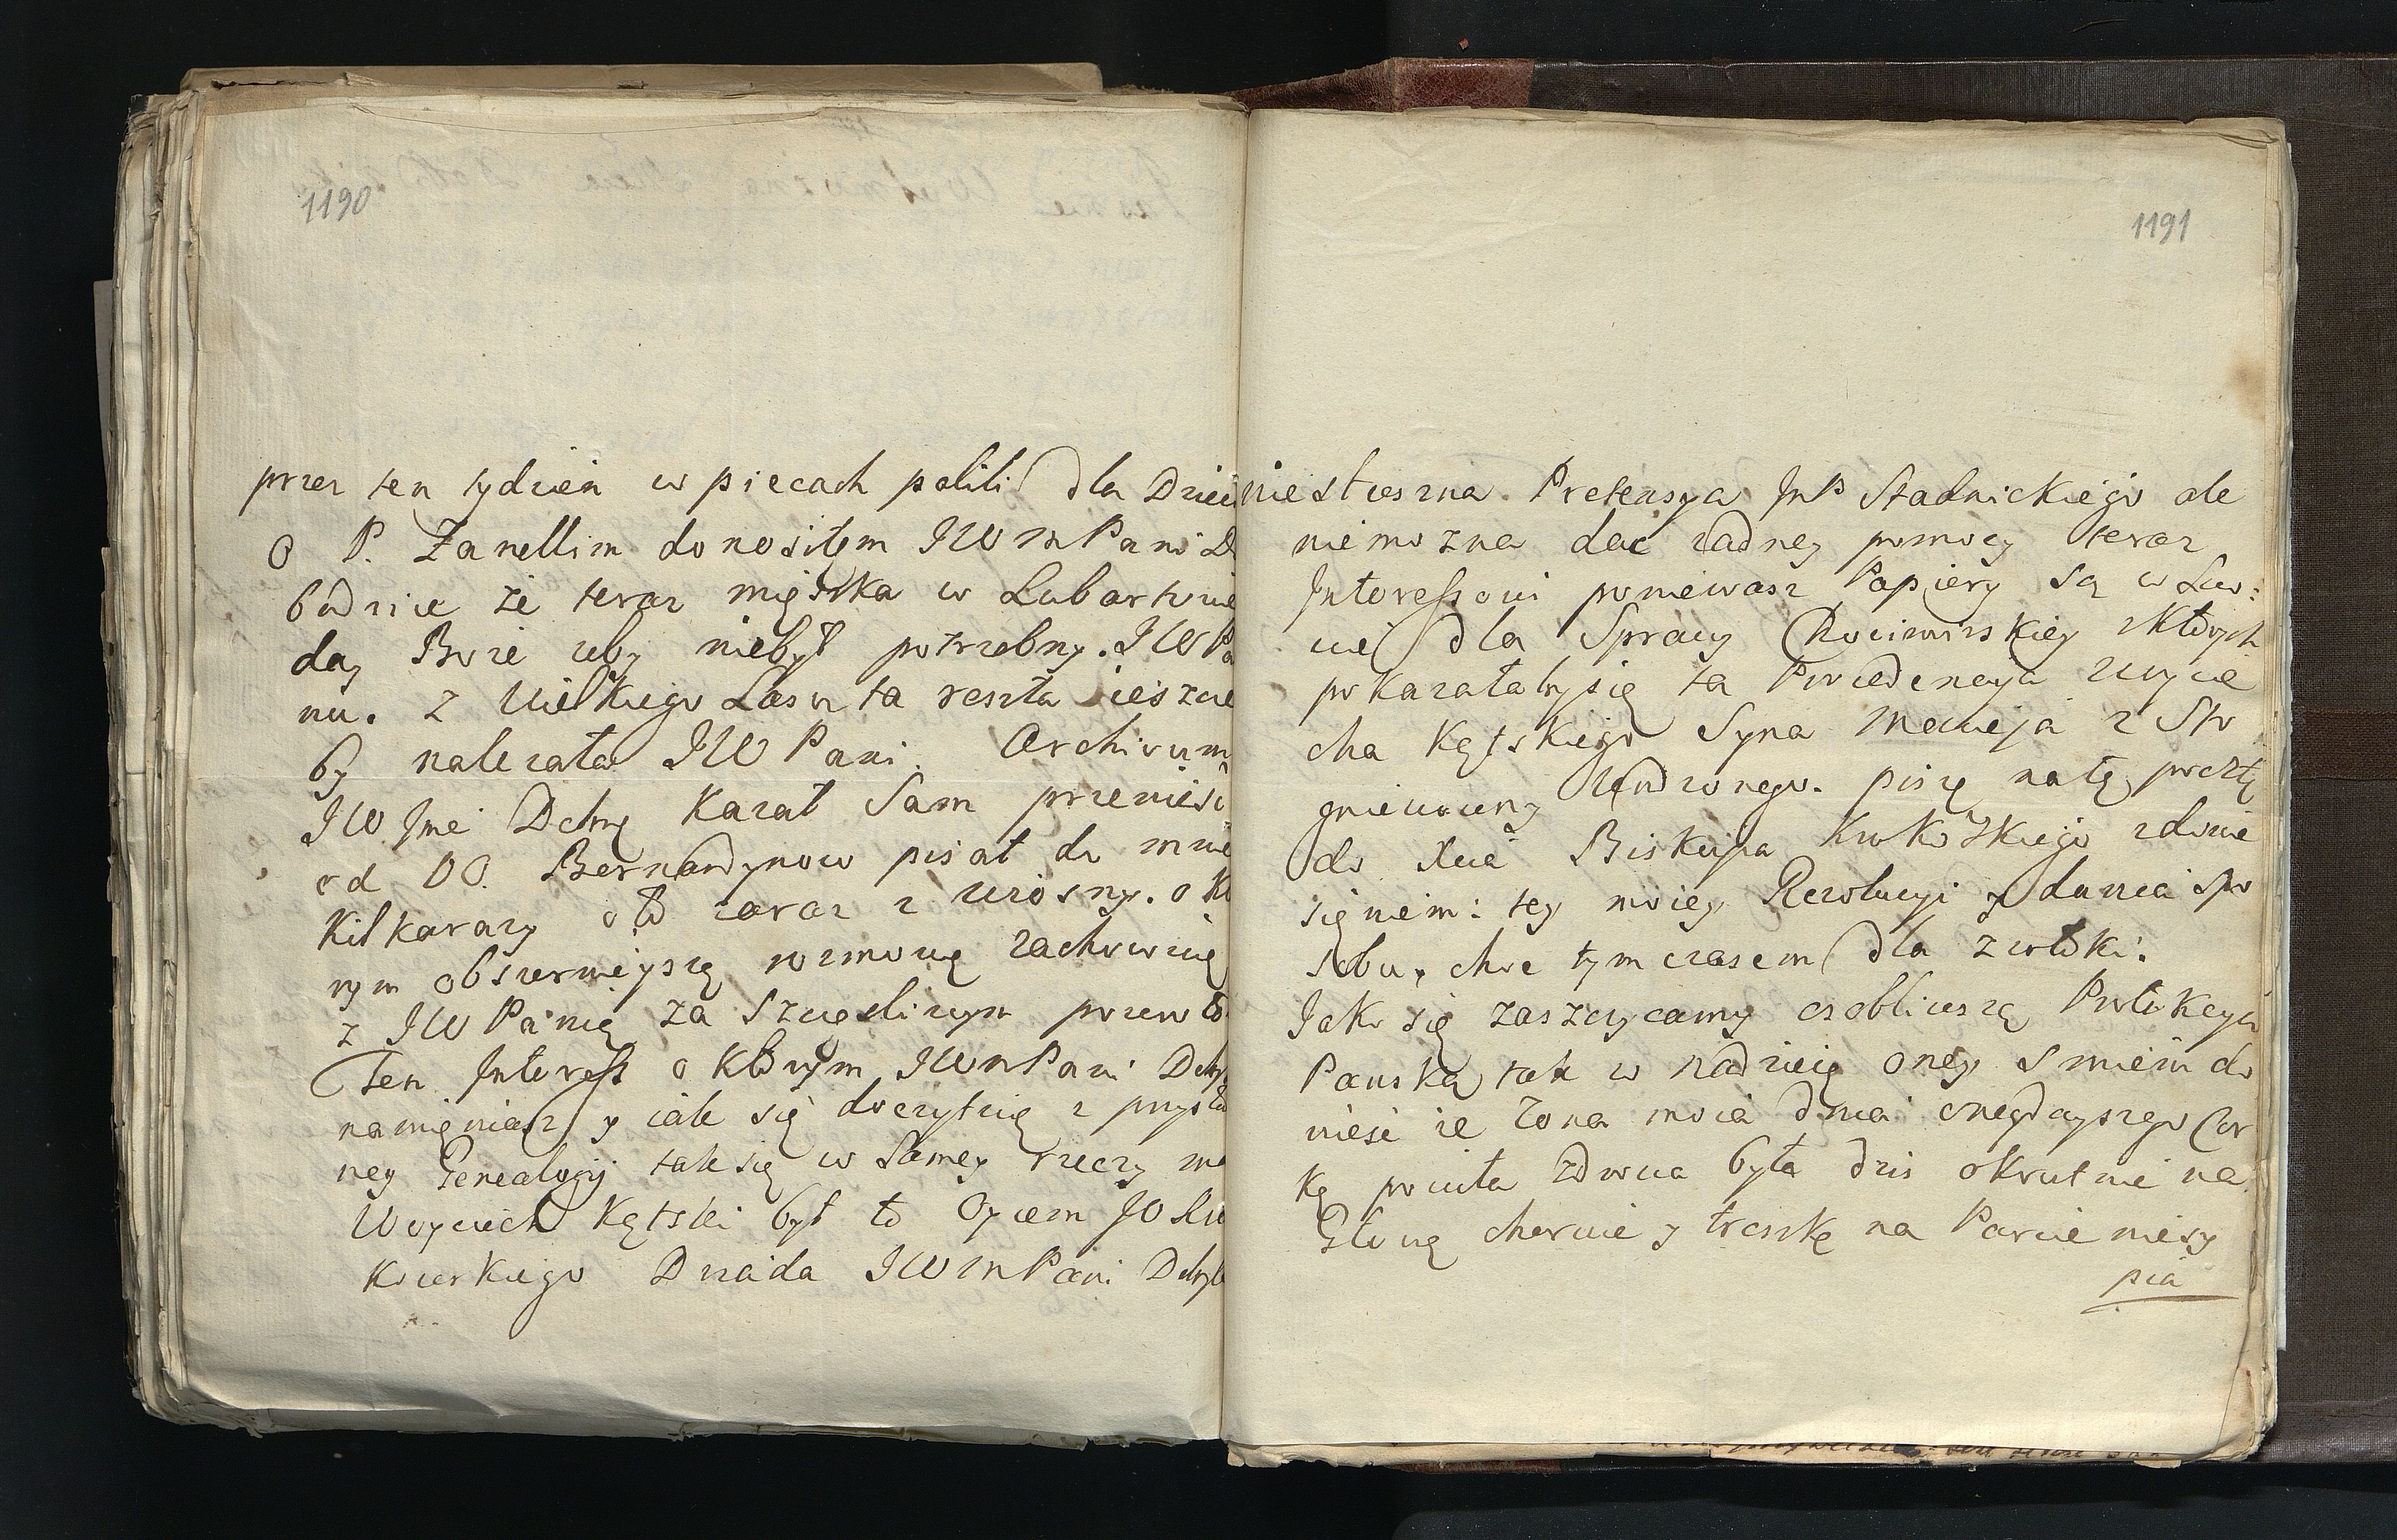 1190
przez ten tydzień w piecach palili dla Dziec
O P. Zanellim donosiłem JWMPani D
bodzie że teraz mięszka w Lubartowie
day Boże żeby niebył potrzebny. JWPa
nu. z Wielkiego Lasu ta reszta ieszcze
by należała JWPani. Archivum
JWJmć Dobrę Kazał Sam przenieść
od OO. Bernardynow pisał do mnie
Kilkarazy oto zaraz z wiosny. o Kto
rym obszernieyszą rozmowę zachowuię
z JWPanią za Szczęśliwym powrot
Ten Interess o Ktorym JWMPani Dob
namięniasz y iak się doczytuię z przysła
ney Genealogij tak się w Samey rzeczy ma
Woyciech Kętski był to Oycem JO
Dziada JWMPani Dob
1191
niesłuszna Pretensya JmP Stadnickiego ale
niemożna dać żadney pomocy teraz
Interessowi poniewasz Papiery są w Lwo:
wie dla Sprawy zktorych
pokazałabysię ta Procedencya Woycie
cha Kętskiego Syna Macieja z Sto
gniewuwny Urodzonego. piszę natę pocztę
do Xcia Biskupa zdowie
sięniem: tey moiey Rezolucyi y dania spo
sobu, choc tymczasem dla zwłoki.
Jako się zaszczycamy osobliwszą Protekcyą
Panską tak w nadzieię oney Smiem do
nieść że Zona moia dnia onegdayszego Cor
kę powiła zdrowa była dzis okrutnie na
Głowę choruie y troszkę na Parcie niesy
pia